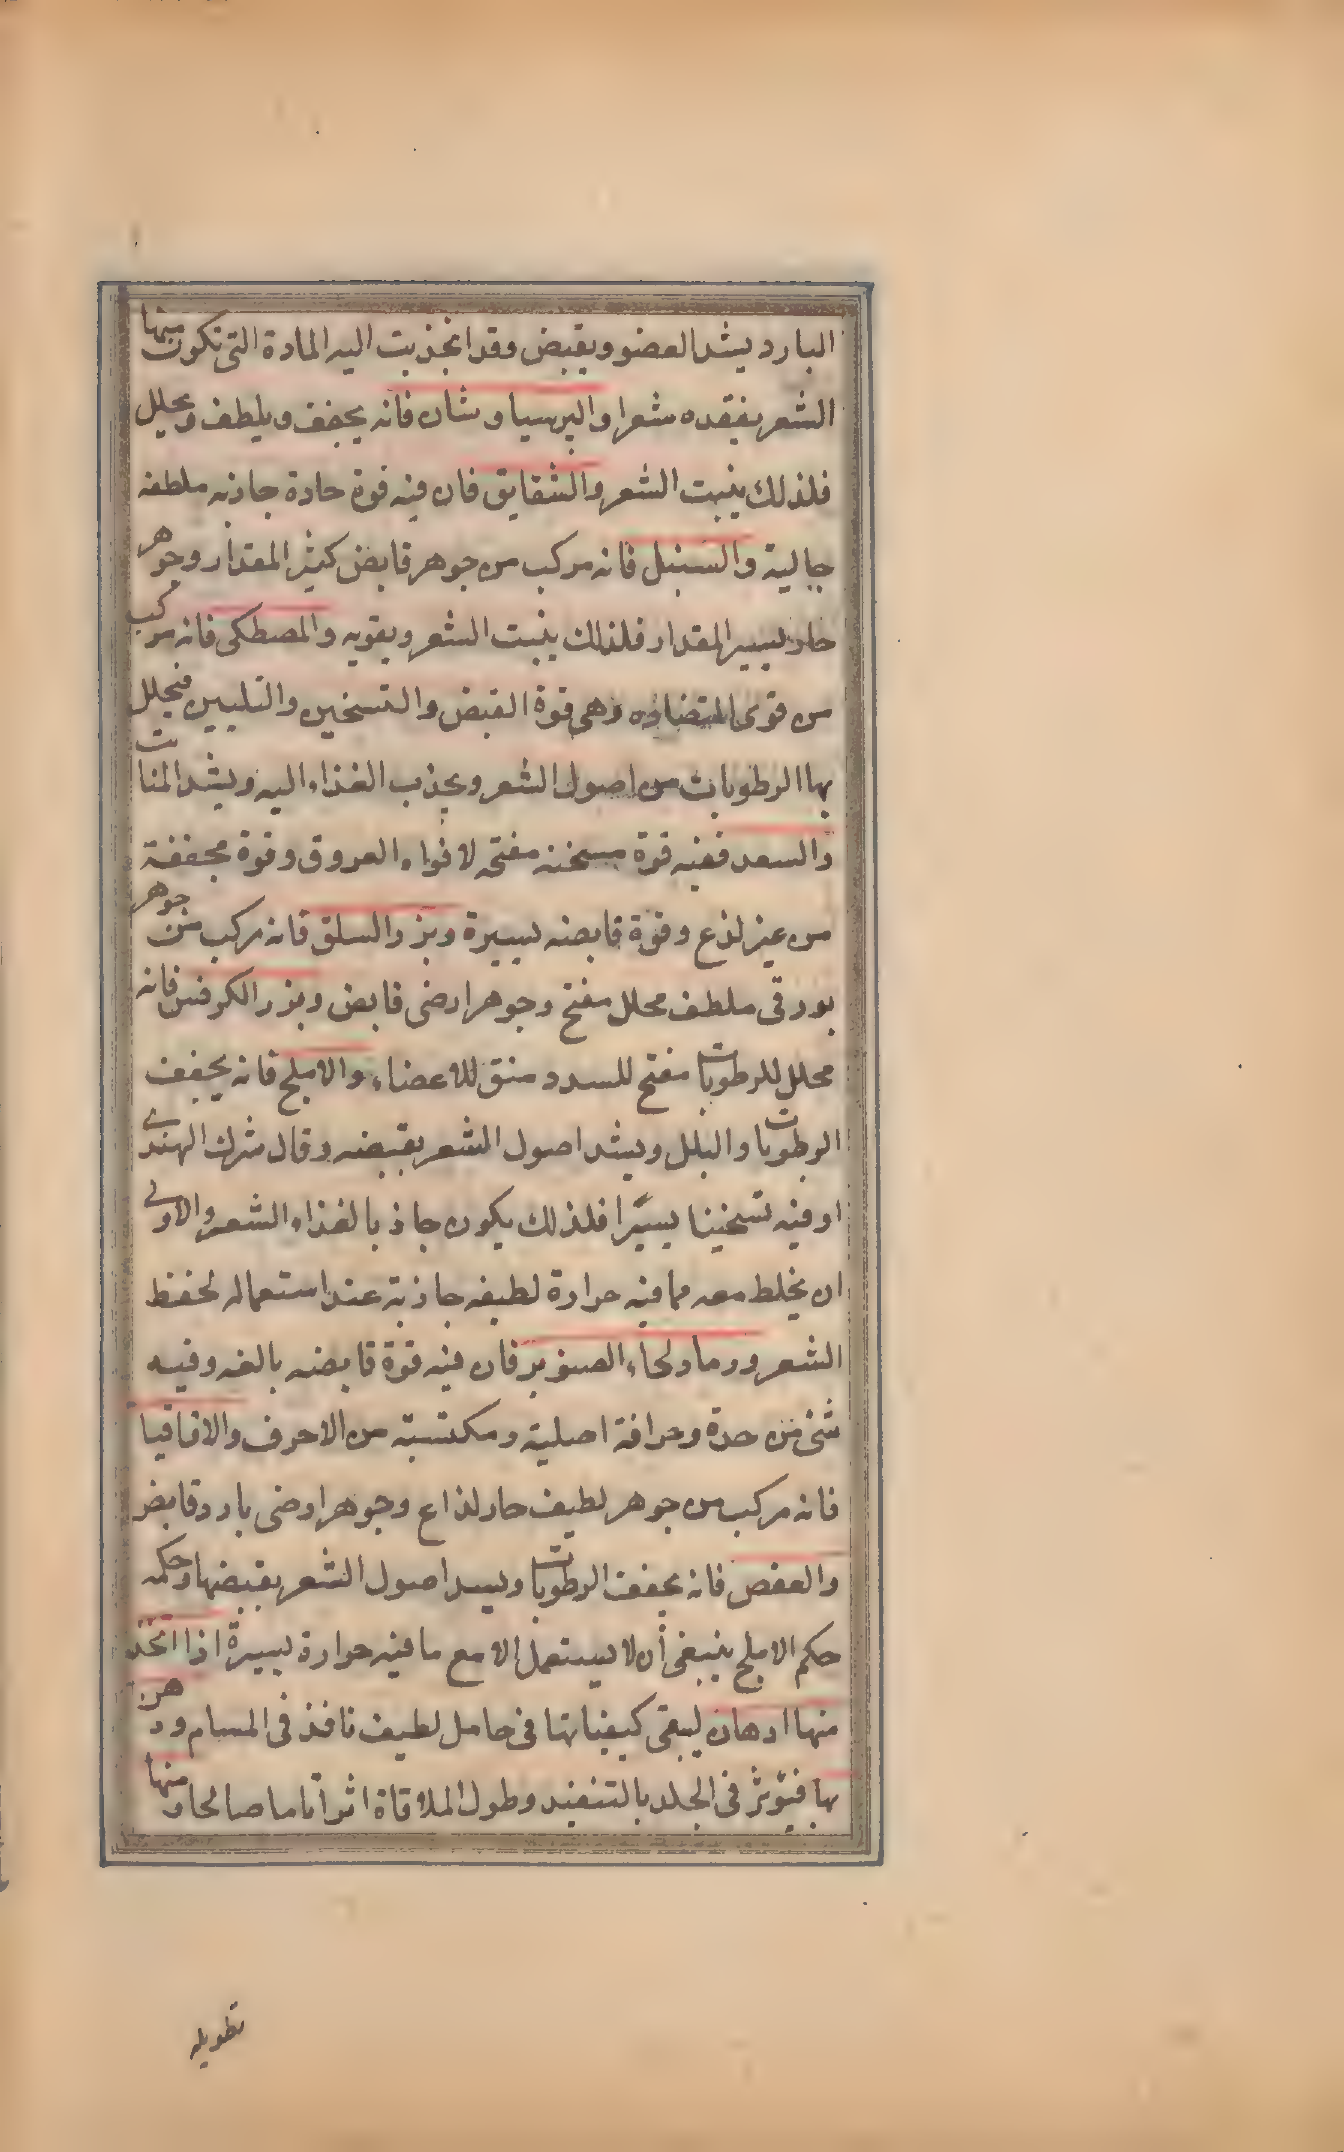 البارد يشد العضو ويقبض وقد انجذبت اليه المادة التى تكون منها
الشعر يفقده شعرا والبرسياوشان فانه يجفف ويلطف ويحلل
فلذلك ينبت الشعر والشقايق فان فيه قوة حادة جاذبه ملطفه
جالية والسنبل فانه مركب من جوهر قابض كثير المقدار وجوهر
حار يسير المقدار فلذلك ينبت الشعر ويقويه والمصطكى فانه مركب
من قوى المتضاده وهى قوة القبض والتسخين والتليين فيحلل
بها الرطوبات من اصول الشعر ويجذب الغذاء اليه ويشد المنابت
والسعد ففيه قوة مسخنه مفتحه لافواه العروق وقوة مجففة
من غير لذع وقوة قابضه يسيرة وبزر السلق فانه مركب من جوهر
بورقى ملطف محلل مفتح وجوهر ارضى قابض وبزر الكرفس فانه
محلل للرطوبات مفتح للسدد منق للاعضاء والاملج فانه يجفف
الرطوبات والبلل ويشد اصول الشعر بقبضه وقال شرك الهندى
او فيه تسخينا يسيرا فلذلك يكون جاذبا لغذاء الشعر والاولى
ان يخلط معه مما فيه حرارة لطيفه جاذبة عند استعماله لحفظ
الشعر ورماد لحاء الصنوبر فان فيه قوة قابضه بالغه وفيه
شئ من حدة وحرافة اصلية ومكتسبة من الاحرق والاقاقيا
فانه مركب من جوهر لطيف حار لذاع وجوهر ارضى بارد قابض
والعفص فانه يجفف الرطوبات ويسد اصول الشعر بقبضها وحكمه
حكم الاملج ينبغى أن لا يستعمل الا مع ما فيه حرارة يسيرة اذا اتخذ
منها ادهان ليبقى كيفياتها فى حامل لطيف نافذ فى المسام ودهن
بها فيؤثر فى الجلد بالتنفيذ وطول الملاقاة اثرا تاما صالحا ومنها
تطويله